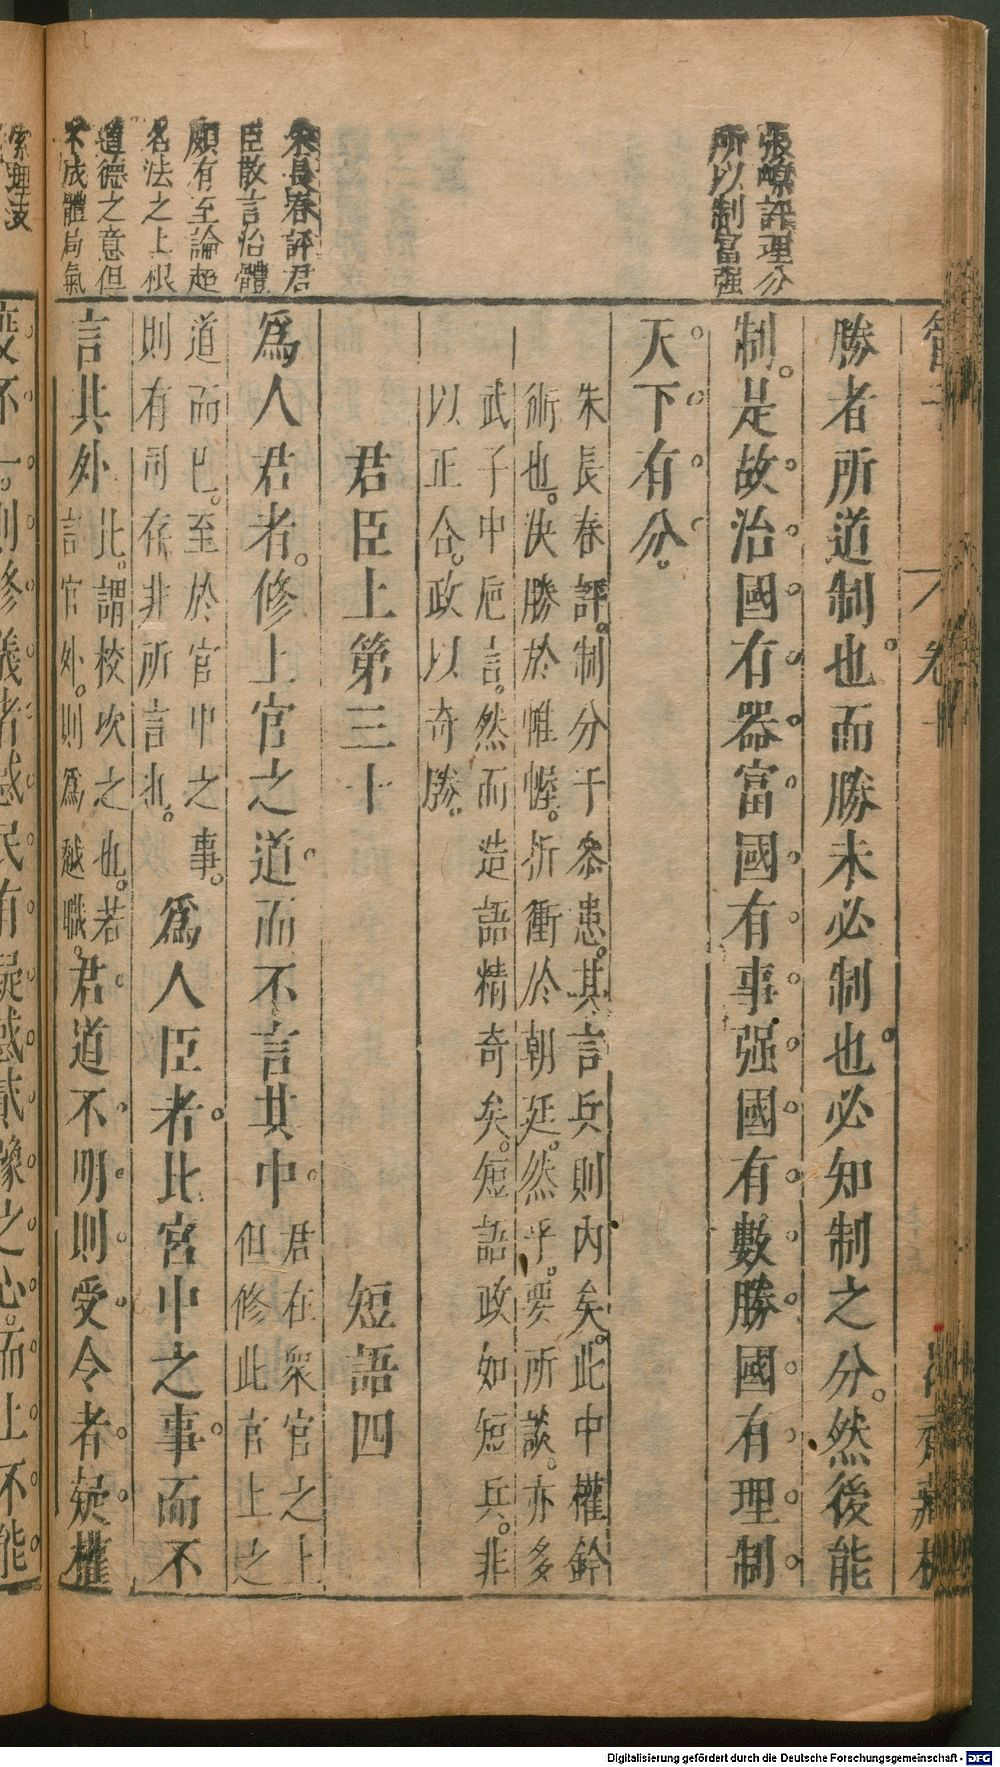 張嵲評理分
所以制富强
勝者所道制也而勝未必制也必知制之分然後能
制是故治國有器富國有事强國有數勝國有理制
天下有分
朱長春評制分于叅患其言兵則內矣此中權鈐
術也決勝於惟幄折衝於朝廷然乎要所談亦多
武子中卮言然而造語精奇矣短語政如短兵非
以正合政以奇勝
君臣上第三十 短語四
朱長春評君
臣散言治體
頗有至論起
名法之上根
道德之意但
不成體局氣
爲人君者修上官之道而不言其中君在衆官之上但修此官上之
道而已至於官中之事則有司存非所言也爲人臣者比官中之事而不
言其外比謂校次之也若言官外則爲越職君道不明則受令者疑權
索理支
度不一則修義者惑民有疑惑貳豫之心而上不能
Digitalisierung gefördert durch die Deutsche Forschungsgemeinschaft - DFG